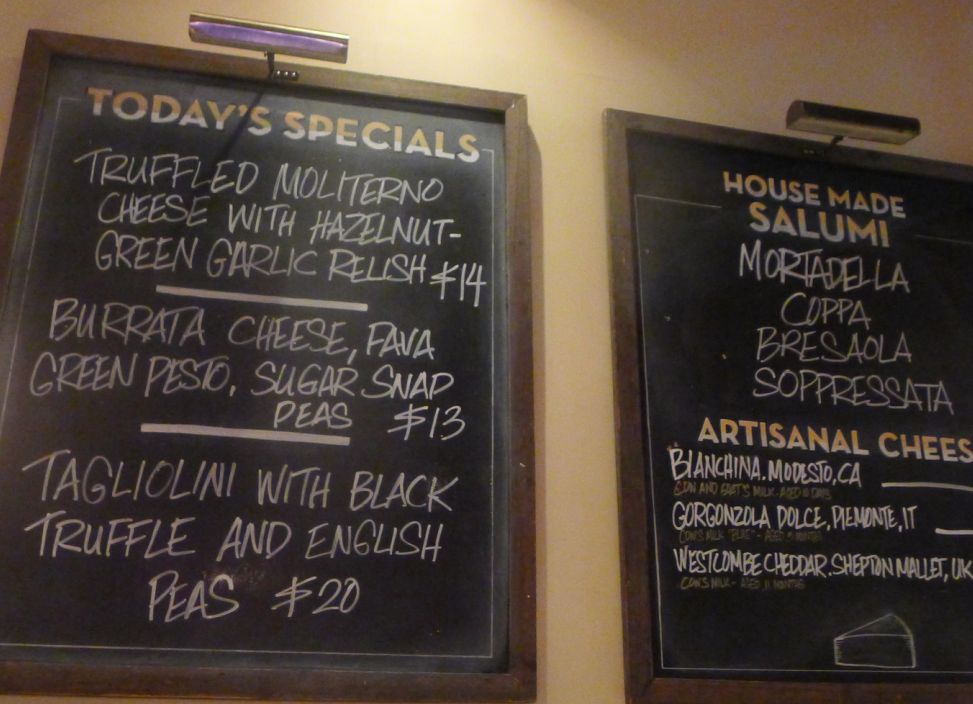 TODAY'S SPECIALS
TRUFFLED MOLITERNO
CHEESE WITH HAZELNUT-
GREEN GARLIC RELISH $14
BURRATA CHEESE, FAVA
GREEN PESTO, SUGAR SNAP
PEAS $13
TAGLIOLINI WITH BLACK
TRUFFLE AND ENGLISH
PEAS $20
HOUSE MADE
SALUMI
MORTADELLA
COPPA
BRESAOLA
SOPPRESSATA
ARTISANAL CHEES
BIANCHINA. MODESTO, CA
AND GOAT'S MILK - AGED 10 DAYS
GORGONZOLA DOLCE, PIEMONTE, IT
COW'S MILK "BLUE" - AGED MONTHS
WESTCOMBE CHEDDAR. SHEPTON MALLET, UK
COW'S MILK - AGED 11 MONTHS